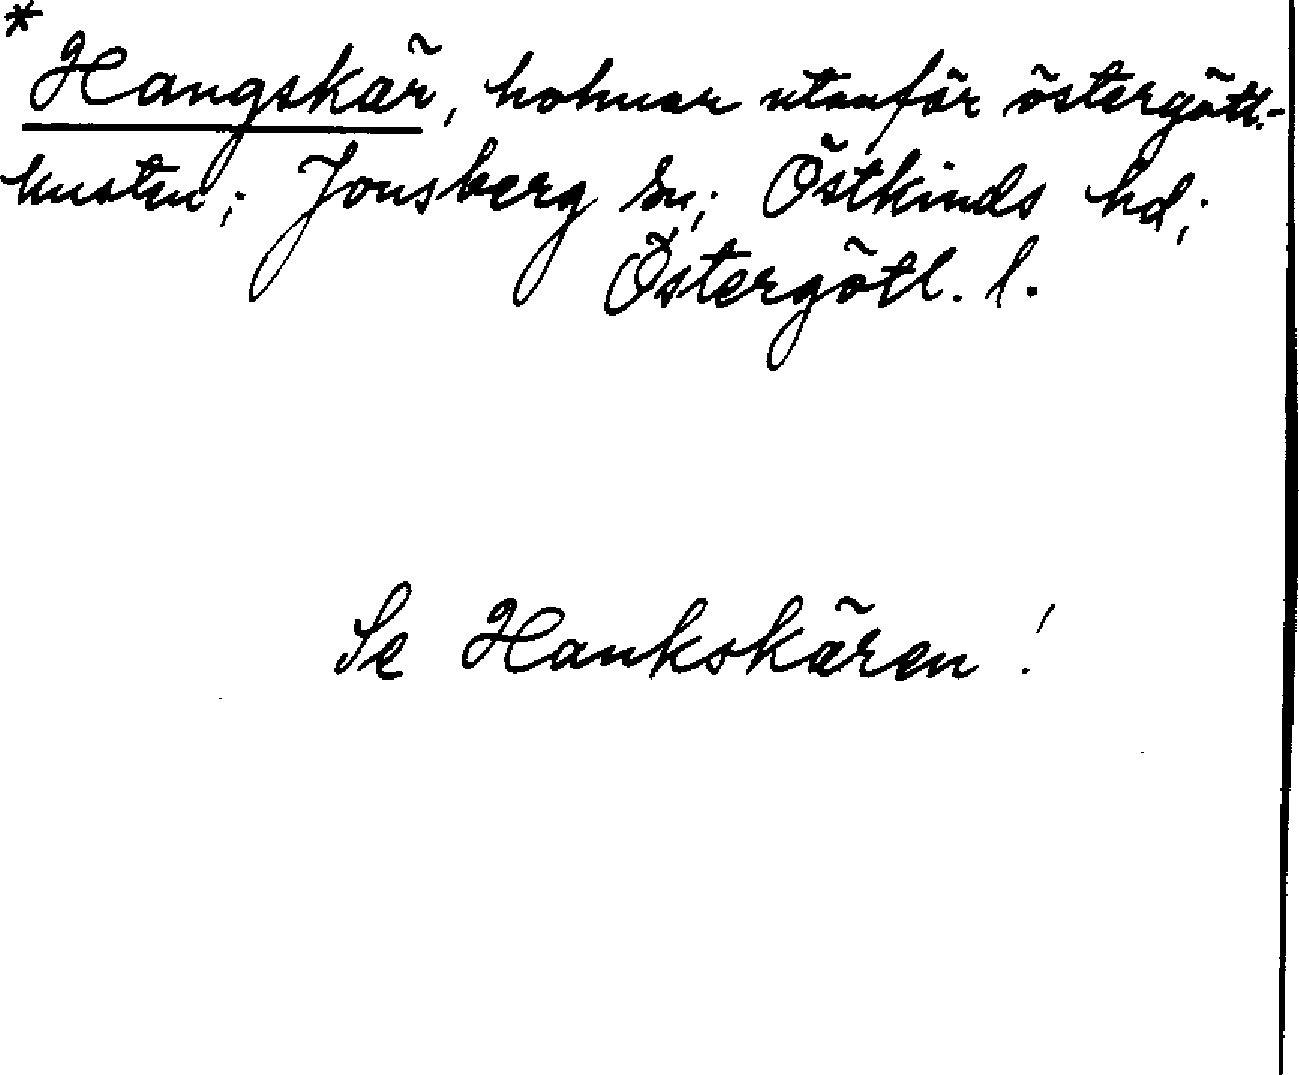 * Hangskär, holmar utanför östergötl.-
kusten; Jonsberg sn; Östkinds hd;
Östergötl. l.
Se Hankskären!